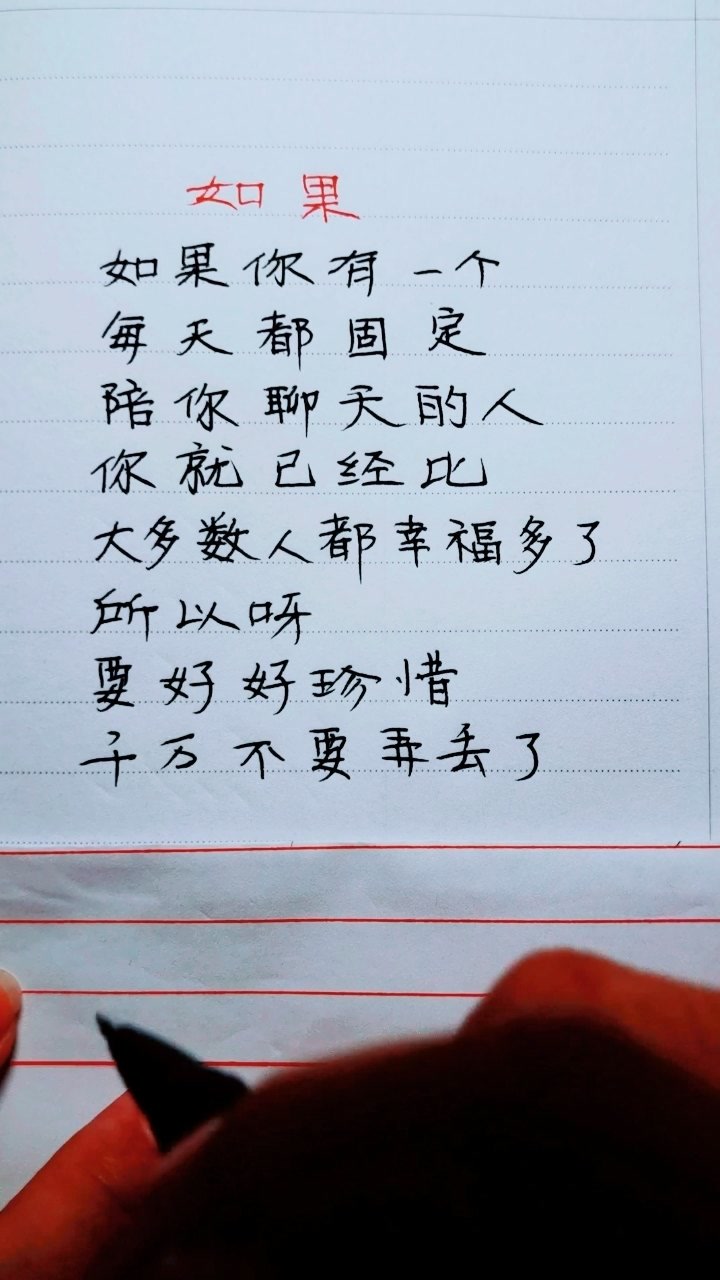 如果
如果你有一个
每天都固定
陪你聊天的人
你就已经比
大多数人都幸福多了
所以呀
要好好珍惜
千万不要弄丢了